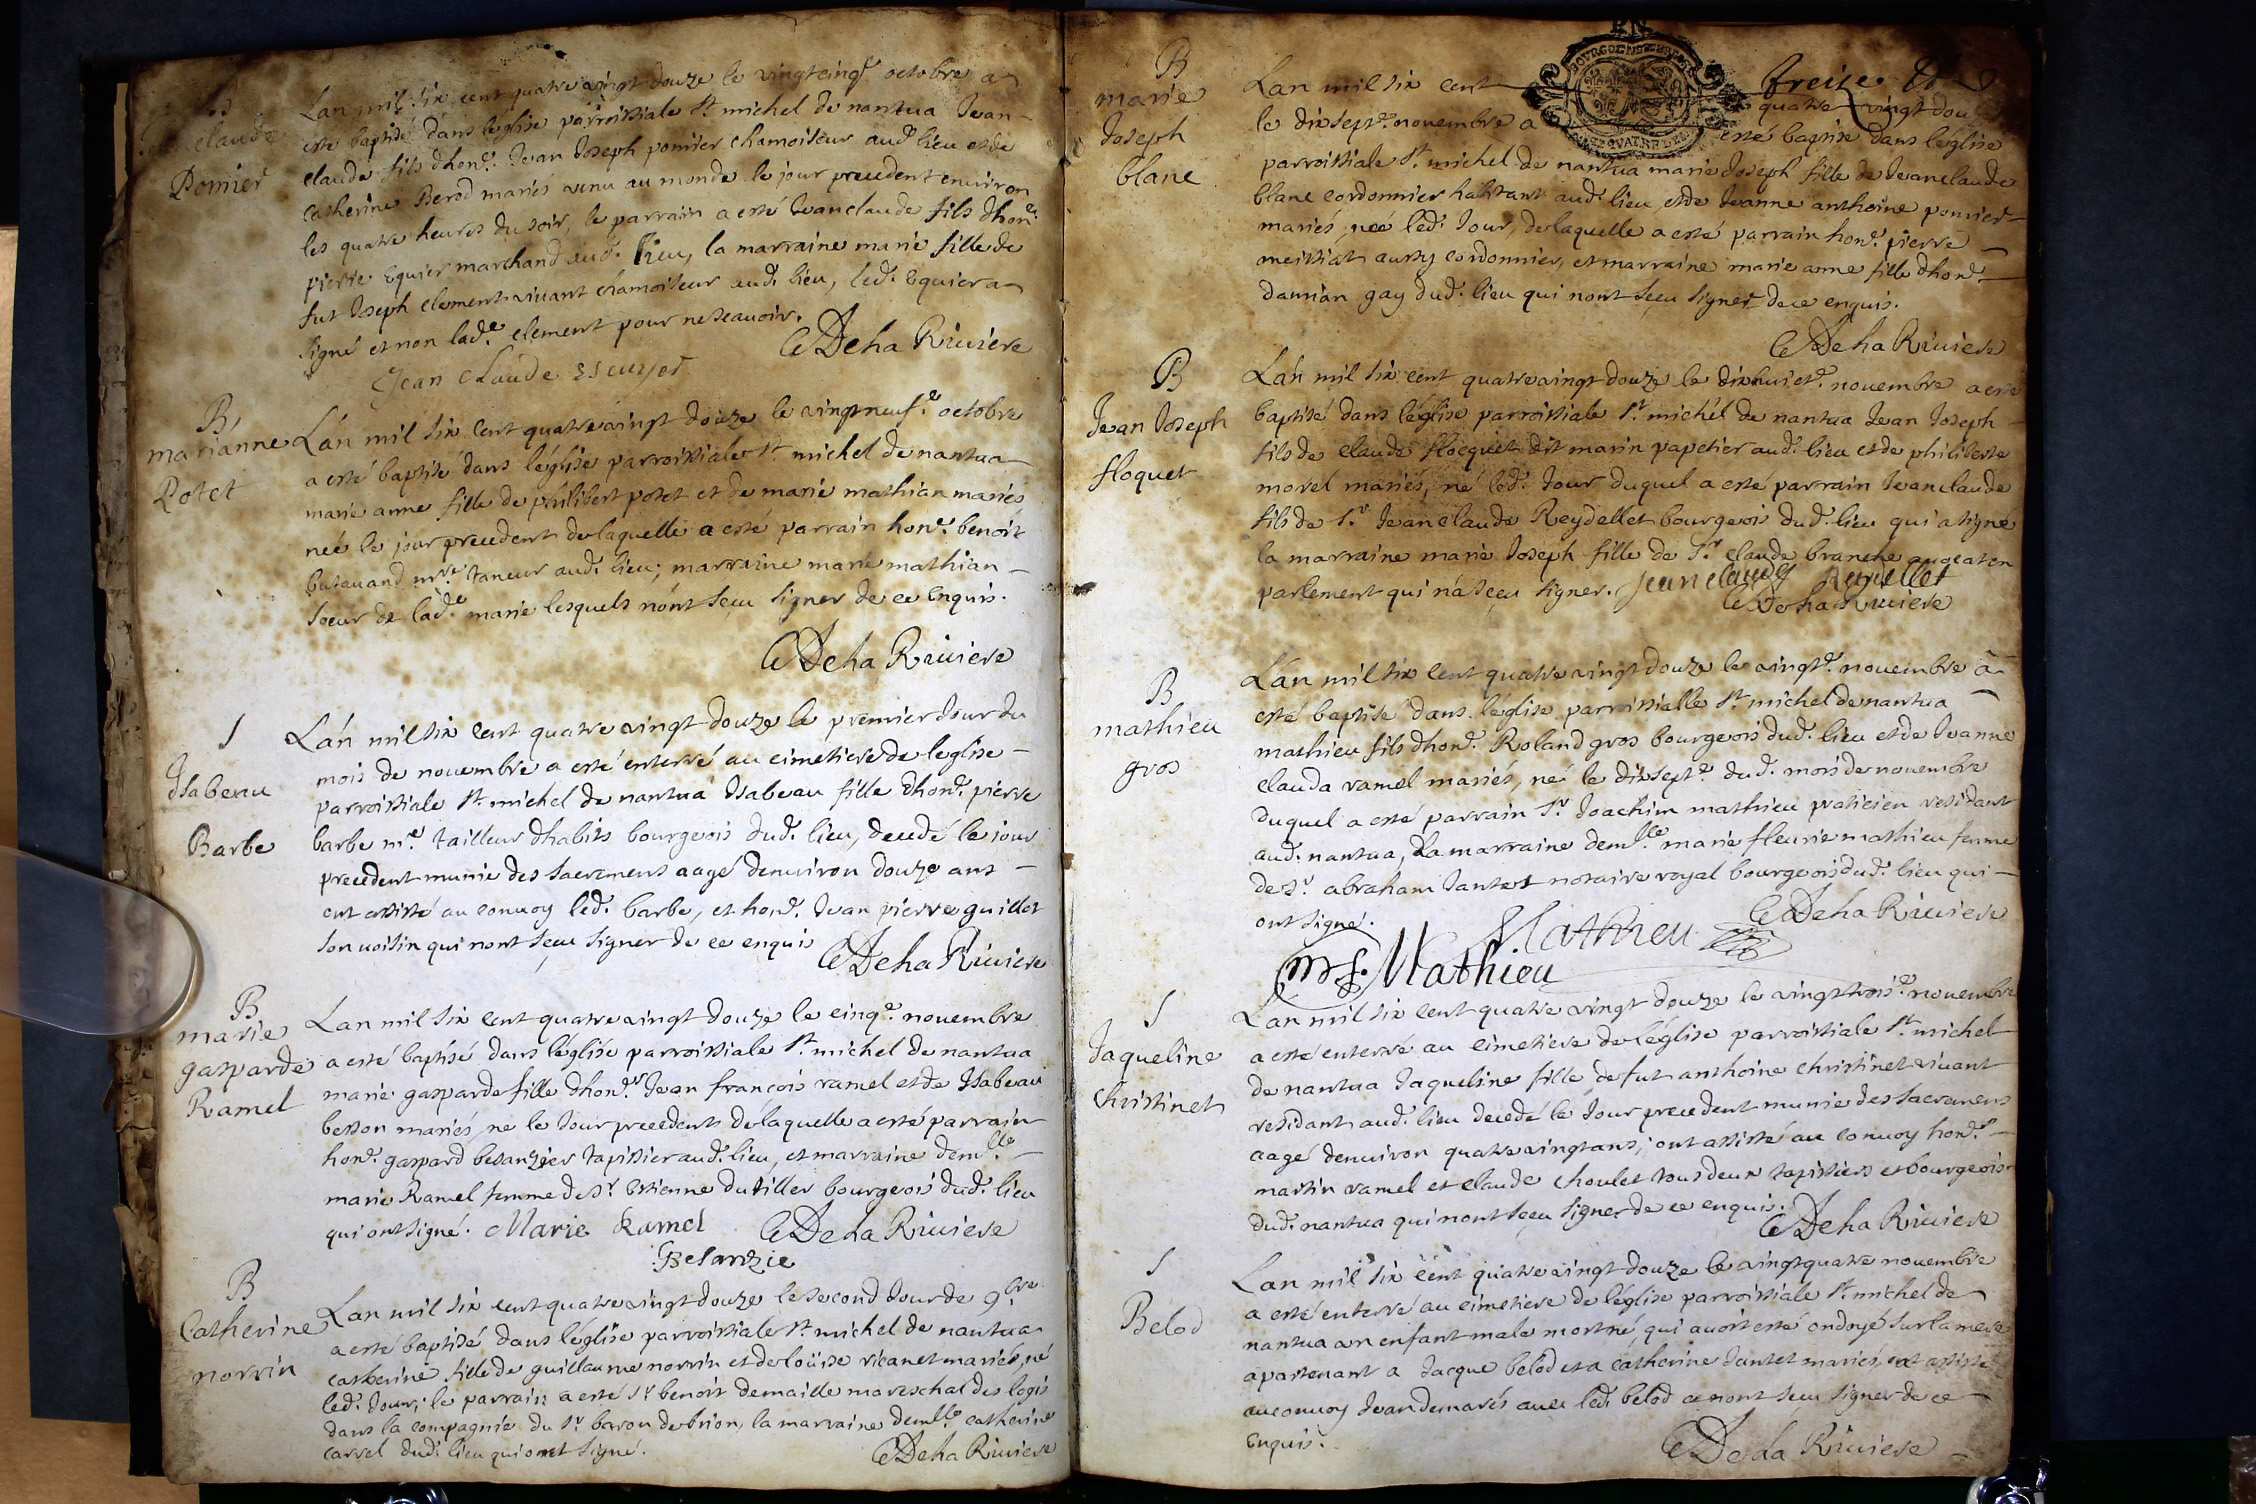 B
claude
Pomier
Lan mil six cent quatre vingt douze le vingtcinq.e octobre a
esté baptisé dans leglise parroissiale St michel de nantua Jean
claude fils dhon.e Jean Joseph pomier chamoiseur aud lieu et de
catherine Berod mariés venu au monde le jour precedent environ
les quatre heures du soir, le parrain a esté Jeanclaude fils dhon.e
pierre Equier marchand aud. lieu, la marraine marie fille de
fut Joseph clement vivant chamoiseur aud. lieu, led. Equier a
signé et non lad.e clement pour ne scavoir.
CDeha Riviere
Jean Claude Escuyer
B
marianne
Potet
Lan mil six cent quatre vingt douze le vingtneuf.e octobre
a esté baptisé dans léglise parroissiale St michel de nantua
marie anne fille de philibert potet et de marie mathian mariés
neé le jour precedent de laquelle a esté parrain hon.e benoit
butavand m.re taneur aud. lieu; marraine marie mathian
soeur de lad.e marie lesquels nont sceu signer de ce Enquis.
CDeha Riviere
S
Isabeau
Barbe
Lán mil six cent quatre vingt douze le premier Jour du
mois de novembre a esté enterré au cimetiere de leglise
parroissiale St michel de nantua Isabeau fille dhon.e pierre
barbe m.e tailleur dhabits bourgeois dud. lieu, decedé le jour
precedent munie des sacremens aagé denviron douze ans
ont assisté au convoy led. barbe, et hon.e Jean pierre guillot
son voisin qui nont sceu signer de ce enquis
CDeha Riviere
B
marie
gasparde
Ramel
Lan mil six cent quatre vingt douze le cinq.e novembre
a esté baptisé dans léglise parroissiale St michel de nantua
marie gasparde fille dhon.e Jean françois ramel et de Isabeau
besson mariés, ne le Jour precedent de laquelle a esté parrain
hon.e gaspard besanzier tapissier aud. lieu, et marraine dem.lle
marie Ramel femme de Sr Estienne dutiller bourgeois dud. lieu
qui ont signé. Marie Ramel CDeha Riviere
Besanzie
B
Catherine
norrin
Lan mil six cent quatre vingt douze le second Jour de 9.bre
a esté baptisé dans léglise parroissiale St michel de nantua
catherine fille de guillaume norrin et de loüise ricanet mariés, né
led. Jour; le parrain a esté Sr benoit demaille mareschal des logis
dans la compagnie du Sr baron de brion, la marraine dem.lle catherine
carrel dud. lieu qui ont signé.
CDeha Riviere
B
marie
Joseph
blanc
treize
Lan mil six cent quatre vingt douze
le dixsept.e novembre a esté baptisé dans léglise
parroissiale St michel de nantua marie Joseph fille de Jeanclaude
blanc cordonnier habitant aud. lieu, et de Jeanne anthoine pomier
mariés, neé led. Jour, de laquelle a esté parrain hon.e pierre
meissiat aussy cordonnier, et marraine marie anne fille dhon.e
damian gay dud. lieu qui nont sceu signer de ce enquis.
CDeha Riviere
B
Jean Joseph
floquet
Lan mil six cent quatre vingt douze le dixhuict.e novembre a esté
baptisé dans léglise parroissiale St michel de nantua Jean Joseph
fils de claude flocquet dit marin papetier aud. lieu et de philiberte
morel mariés, né led. Jour duquel a esté parrain Jeanclaude
fils de Sr Jeanclaude Reydellet bourgeois dud. lieu qui a signé
la marraine marie Joseph fille de Sr claude branche avocat en
parlement qui ná sceu signer. Jeanclaude Reydellet
CDeha Riviere
B
mathieu
gros
Lán mil six cent quatre vingt douze le vingt.e novembre a
esté baptisé dans léglise parroissialle St michel de nantua
mathieu fils dhon.e Roland gros bourgeois dud. lieu et de Jeanne
clauda ramel mariés, né le dixsept.e dud. mois de novembre
duquel a esté parrain Sr Joachim mathieu praticien residant
aud. nantua, la marraine dem.lle marie fleurie mathieu femme
de Sr abraham Jantet notaire royal bourgeois dud. lieu qui
ont signé.
CDeha Riviere
Mathieu
m f. Mathieu
S
Jaqueline
christinet
Lan mil six cent quatre vingt douze le vingttrois.e novembre
a esté enterré au cimetiere de léglise parroissiale St michel
de nantua Jaqueline fille de fut anthoine christinet vivant
residant aud. lieu decedé le Jour precedent munie des sacremens
aagé denviron quatre vingt ans; ont assisté au convoy hon.e
martin ramel et claude choulet tous deux tapissiers et bourgeois
dud. nantua qui nont sceu signer de ce enquis.
CDeha Riviere
S
Belod
Lan mil six cent quatre vingt douze le vingtquatre novembre
a esté enterré au cimetiere de léglise parroissiale St michel de
nantua un enfant male mort né, qui avoit esté ondoyé sur la mere
apartenant a Jacque belod et a catherine Jantet mariés, ont assisté
au convoy Jean demarés avec led. belod ce nont sceu signer de ce
Enquis.
CDeLa Riviere